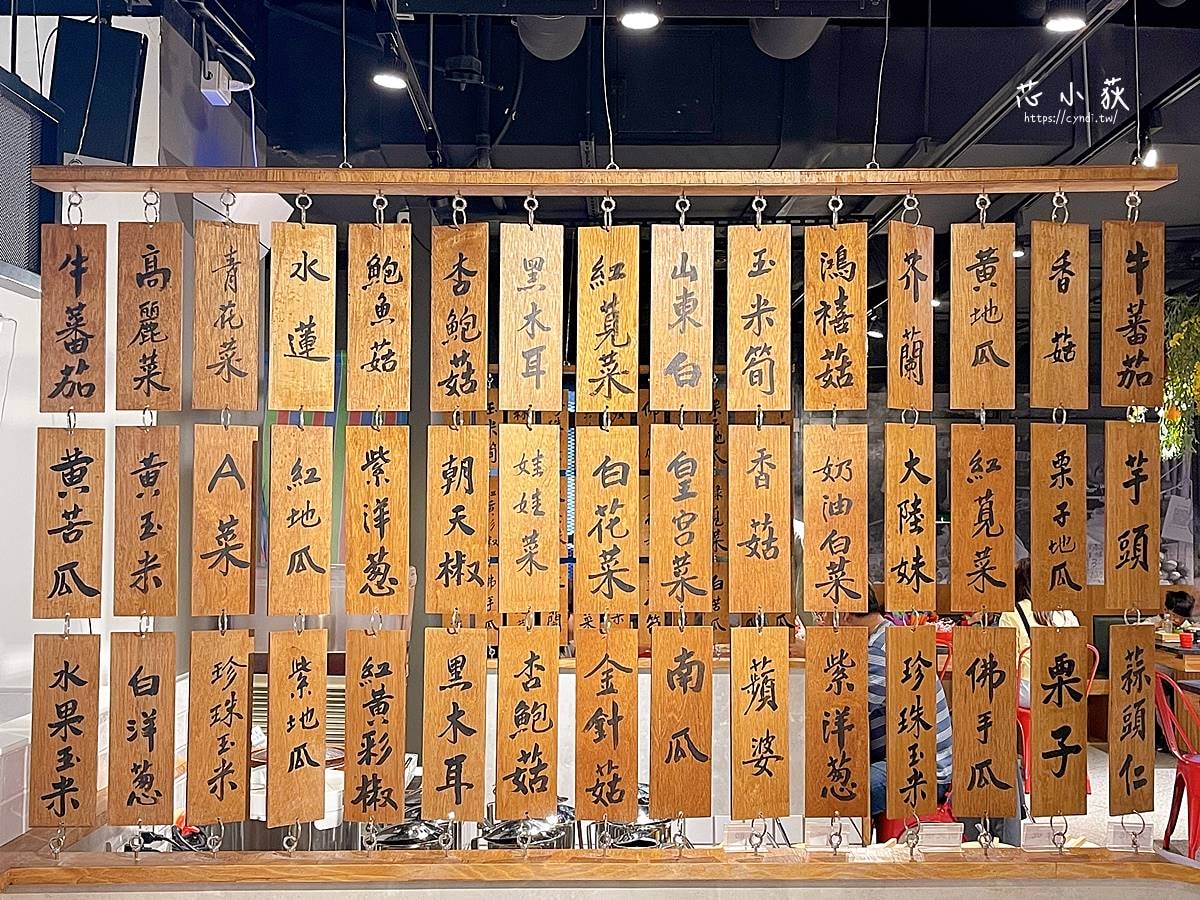 芯小荻
https://cyndi.tw/
牛蕃茄
高麗菜
青花菜
水蓮
鮑魚菇
杏鮑菇
黑木耳
紅莧菜
山東白
玉米筍
鴻禧菇
芥蘭
黃地瓜
香菇
牛蕃茄
黃苦瓜
黃玉米
A菜
紅地瓜
紫洋葱
朝天椒
娃娃菜
白花菜
皇宮菜
香菇
奶油白菜
大陸妹
紅莧菜
栗子地瓜
芋頭
水果玉米
白洋葱
珍珠玉米
紫地瓜
紅黃彩椒
黑木耳
杏鮑菇
金針菇
南瓜
蘋婆
紫洋葱
珍珠玉米
佛手瓜
栗子
蒜頭仁